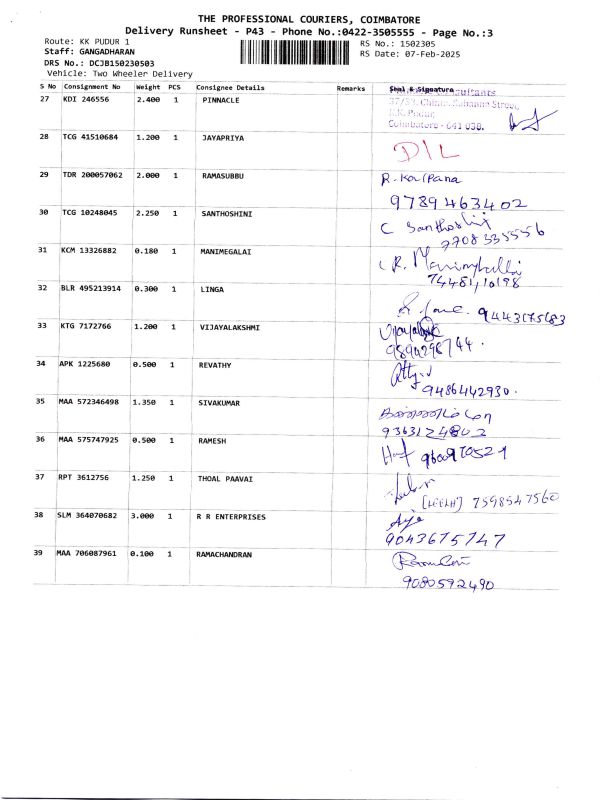 THE PROFESSIONAL COURIERS, COIMBATORE
Delivery Runsheet - P43 - Phone No.:0422-3505555 - Page No.:3
Route: KK PUDUR 1
RS No.: 1502305
Staff: GANGADHARAN
RS Date: 07-Feb-2025
DRS No.: DCJB150230503
Vehicle: Two Wheeler Delivery
S No Consignment No Weight PCS Consignee Details Remarks Seal & Signature
27 KDI 246556 2.400 1 PINNACLE
37/52, Subbanna Street,
K.K. Pudur,
Coimbatore - 641 038.
28 TCG 41510684 1.200 1 JAYAPRIYA D/L
29 TDR 200057062 2.000 1 RAMASUBBU R. Kalpana
9789463402
30 TCG 10248045 2.250 1 SANTHOSHINI C Santhoshini
7708335556
31 KCM 13326882 0.180 1 MANIMEGALAI R.
32 BLR 495213914 0.300 1 LINGA
33 KTG 7172766 1.200 1 VIJAYALAKSHMI
34 APK 1225680 0.500 1 REVATHY
9486442930.
35 MAA 572346498 1.350 1 SIVAKUMAR
9363124802
36 MAA 575747925 0.500 1 RAMESH
37 RPT 3612756 1.250 1 THOAL PAAVAI
7598547560
38 SLM 364070682 3.000 1 R R ENTERPRISES
9043675747
39 MAA 706087961 0.100 1 RAMACHANDRAN
9080592490